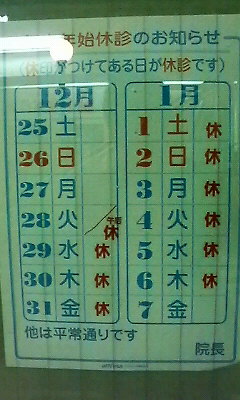 年始休診のお知らせ
(休印がつけてある日が休診です)
12月 1月
25 土 1 土 休
26 日 2 日 休
27 月 3 月 休
28 火 午後 休 4 火 休
29 水 休 5 水 休
30 木 休 6 木 休
31 金 休 7 金
他は平常通りです
院長